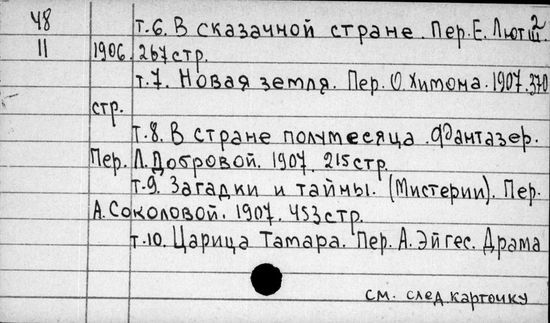 48 т.6. В сказачной стране. Пер. Е. Лютш. 2
11 1906. 267стр.
т.7. Новая земля. Пер. О. Химона. 1907. 370
стр.
т.8. В стране полумесяца. Фантазер.
Пер. Л. Добровой. 1907. 215стр.
т.9. Загадки и тайны. (Мистерии). Пер.
А. Соколовой. 1907. 453стр.
т.10. Царица Тамара. Пер. А. Эйгес. Драма
см. след карточку